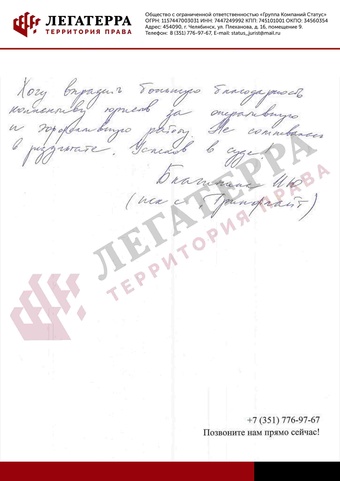 ЛЕГАТЕРРА
ТЕРРИТОРИЯ ПРАВА
Общество с ограниченной ответственностью «Группа Компаний Статус»
ОГРН: 1157447003031 ИНН: 7447249992 КПП: 745101001 ОКПО: 34560354
Адрес: 454090, г. Челябинск, ул. Плеханова, д. 16, помещение 9.
Телефон: 8 (351) 776-97-67, E-mail: status_jurist@mail.ru
Хочу выразить большую благодарность
коллективу юристов за оперативную
и эффективную работу. Не сомневаюсь
в результате. Успехов в суде!
ЛЕГАТЕРРА
ТЕРРИТОРИЯ ПРАВА
+7 (351) 776-97-67
Позвоните нам прямо сейчас!